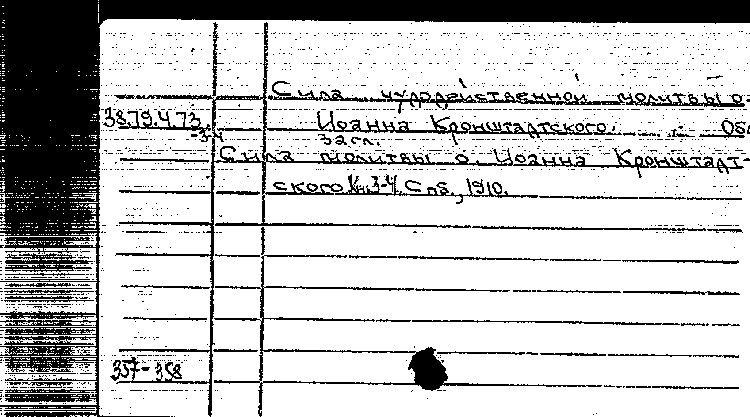 Сила чудодейственной молитвы о.
38.79.4.73 Иоанна Кронштадтского. Об.
-3-4 загл.
Сила молитвы о. Иоанна Кронштадт-
ского. Кн. 3-4. Спб., 1910.
357-358